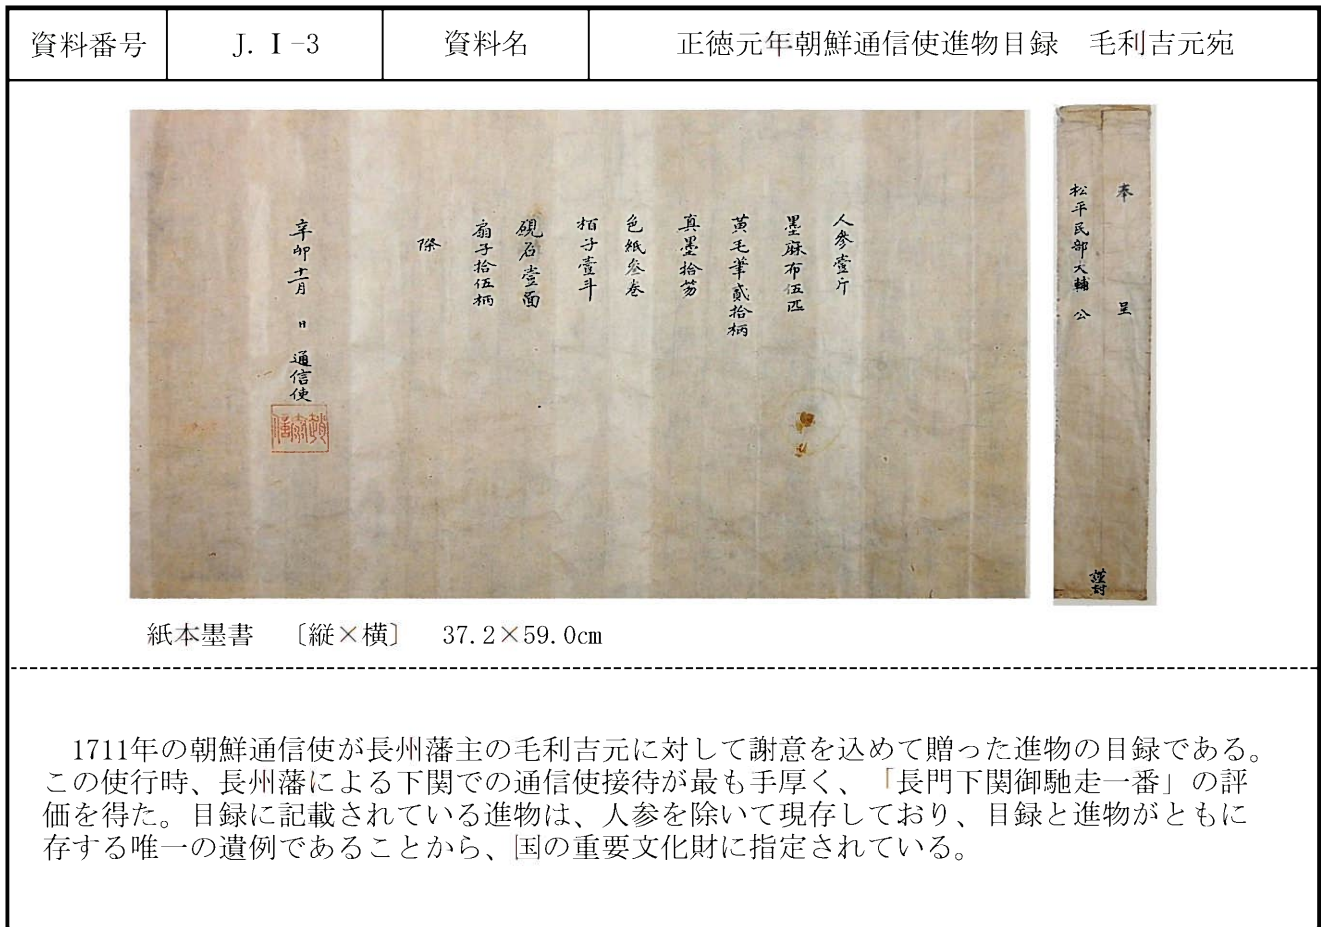 資料番号
J. Ⅰ-3
資料名
正徳元年朝鮮通信使進物目録　毛利吉元宛
奉　呈
松平民部大輔　公
謹封
人參壹斤
墨麻布伍匹
黃毛筆貳拾柄
真墨拾笏
色紙叄卷
栢子壹斗
硯石壹面
扇子拾伍柄
際
辛卯十二月　日　通信使
紙本墨書　〔縦×横〕　37.2×59.0cm
1711年の朝鮮通信使が長州藩主の毛利吉元に対して謝意を込めて贈った進物の目録である。
この使行時、長州藩による下関での通信使接待が最も手厚く、「長門下関御馳走一番」の評
価を得た。目録に記載されている進物は、人参を除いて現存しており、目録と進物がともに
存する唯一の遺例であることから、国の重要文化財に指定されている。